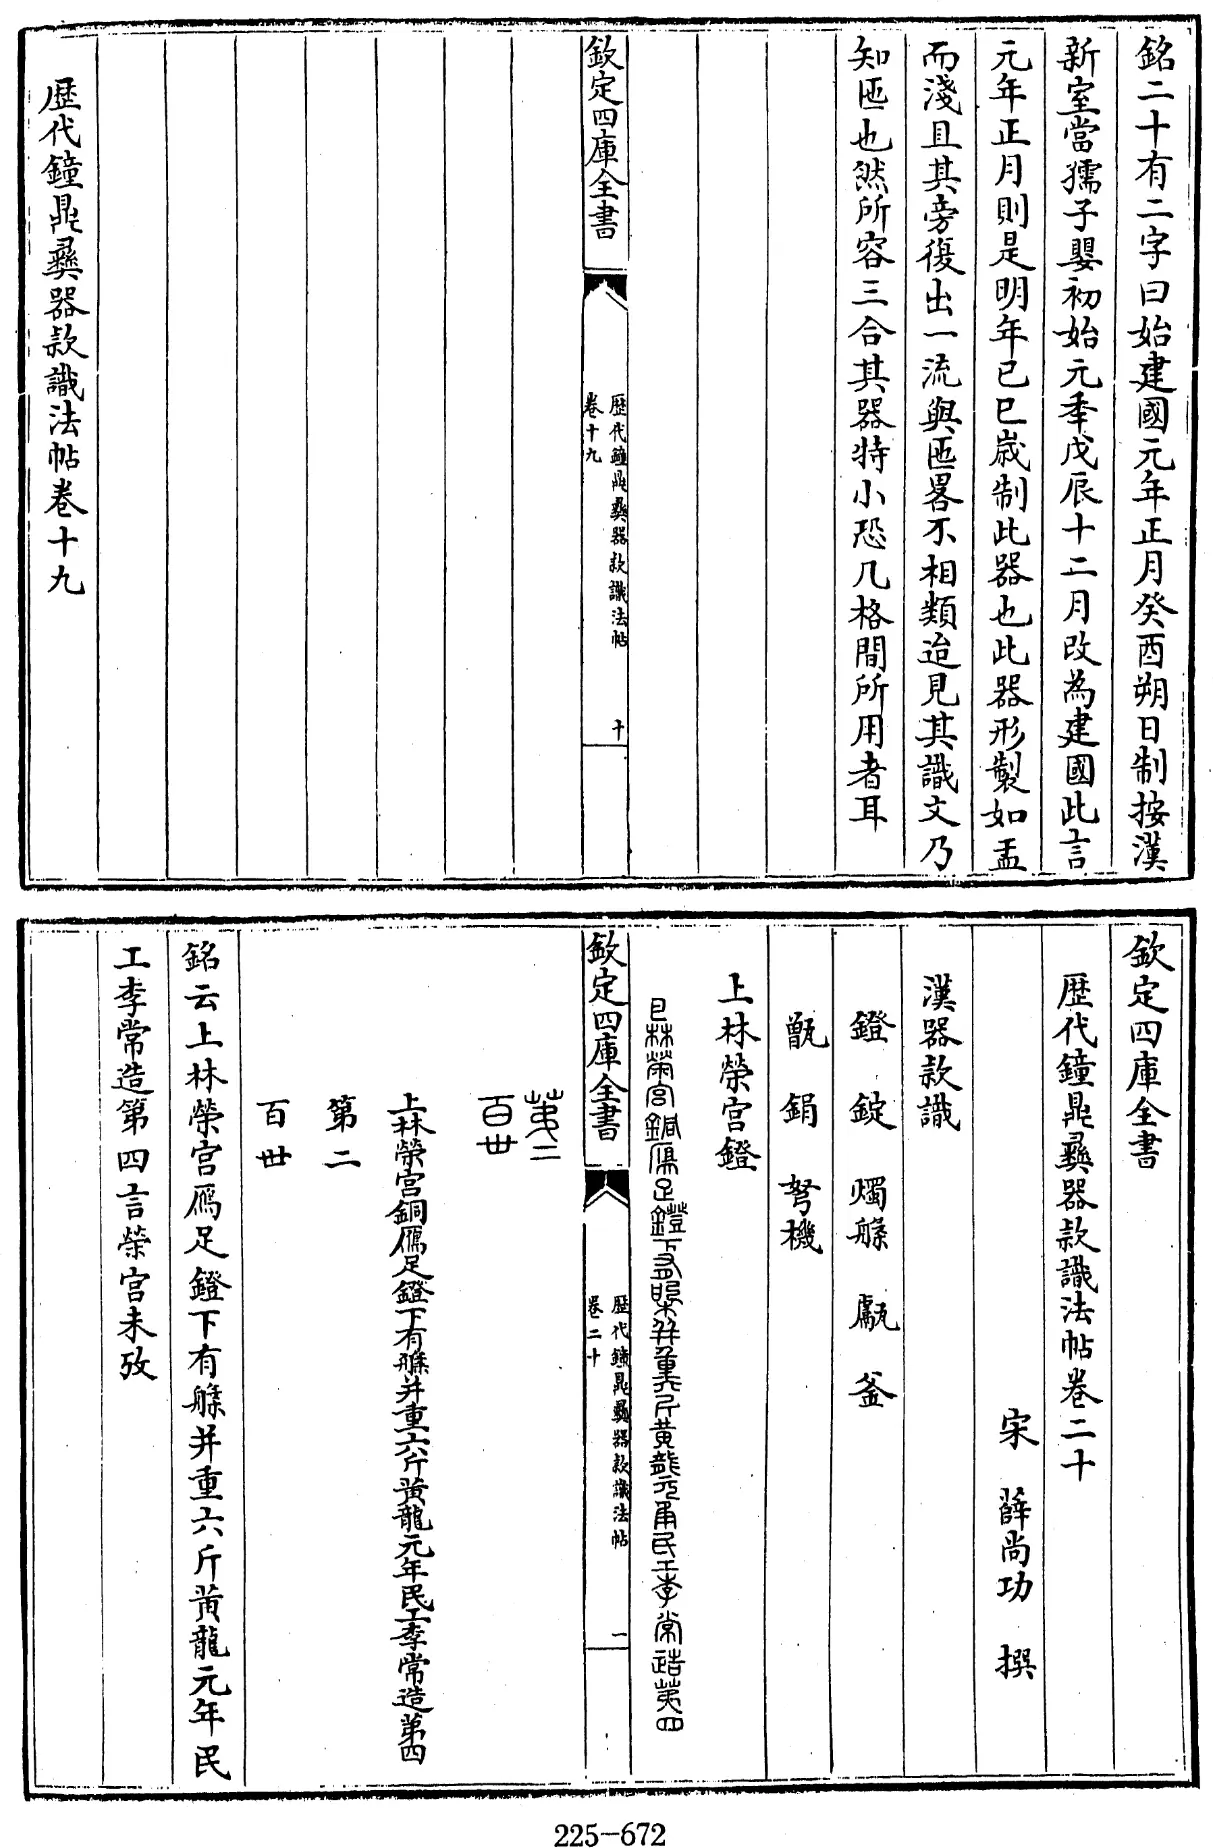 銘二十有二字曰始建國元年正月癸酉朔日制按漢
新室當孺子嬰初始元年戊辰十二月改為建國此言
元年正月則是明年已巳歲制此器也此器形製如盂
而淺且其旁復出一流與匜畧不相類迨見其識文乃
知匜也然所容三合其器特小恐几格間所用者耳
欽定四庫全書
歷代鐘鼎彞器款識法帖
卷十九
十
歷代鐘鼎彞器款識法帖卷十九
欽定四庫全書
歷代鐘鼎彞器款識法帖卷二十
宋 薛尚功 撰
漢器款識
鐙 錠 燭䑽 甗 釜
甑 鋗 弩機
上林榮宮鐙
上林榮宮銅鴈足鐙下有䑽并重六斤黃龍元年民工李常造第四
欽定四庫全書
歷代鐘鼎彞器款識法帖
卷二十
一
第二
百卌
上林榮宮銅鴈足鐙下有䑽并重六斤黃龍元年民工李常造第四
第二
百卌
銘云上林榮宮鴈足鐙下有䑽并重六斤黃龍元年民
工李常造第四言榮宮未攷
225-672